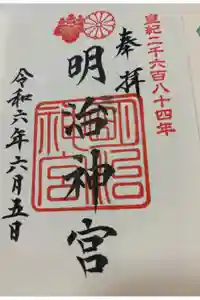 皇紀二千六百八十四年
奉拝
明治神宮
明治神宮
令和六年六月五日